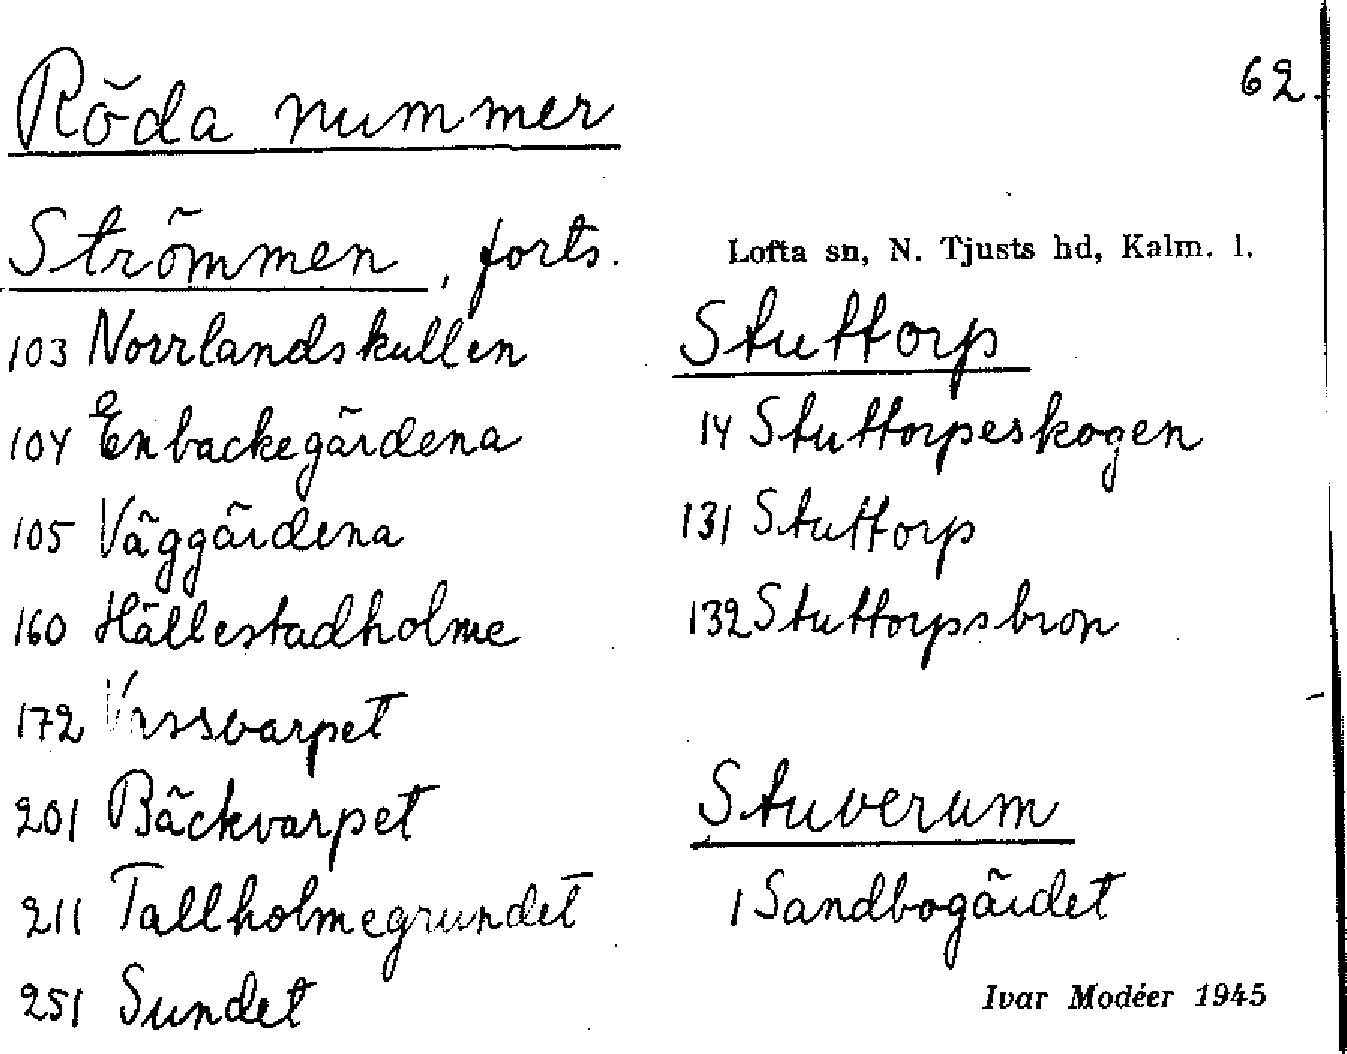 62.
Röda nummer
Strömmen, forts.
103 Norrlandskullen
104 Enbackegärdena
105 Väggärdena
160 Hällestadholme
172 Vassvarpet
201 Bäckvarpet
211 Tallholmegrundet
251 Sundet
Lofta sn, N. Tjusts hd, Kalm. l.
Stuttorp
14 Stuttorpeskogen
131 Stuttorp
132 Stuttorpsbron
Stuverum
1 Sandbogärdet
Ivar Modéer 1945